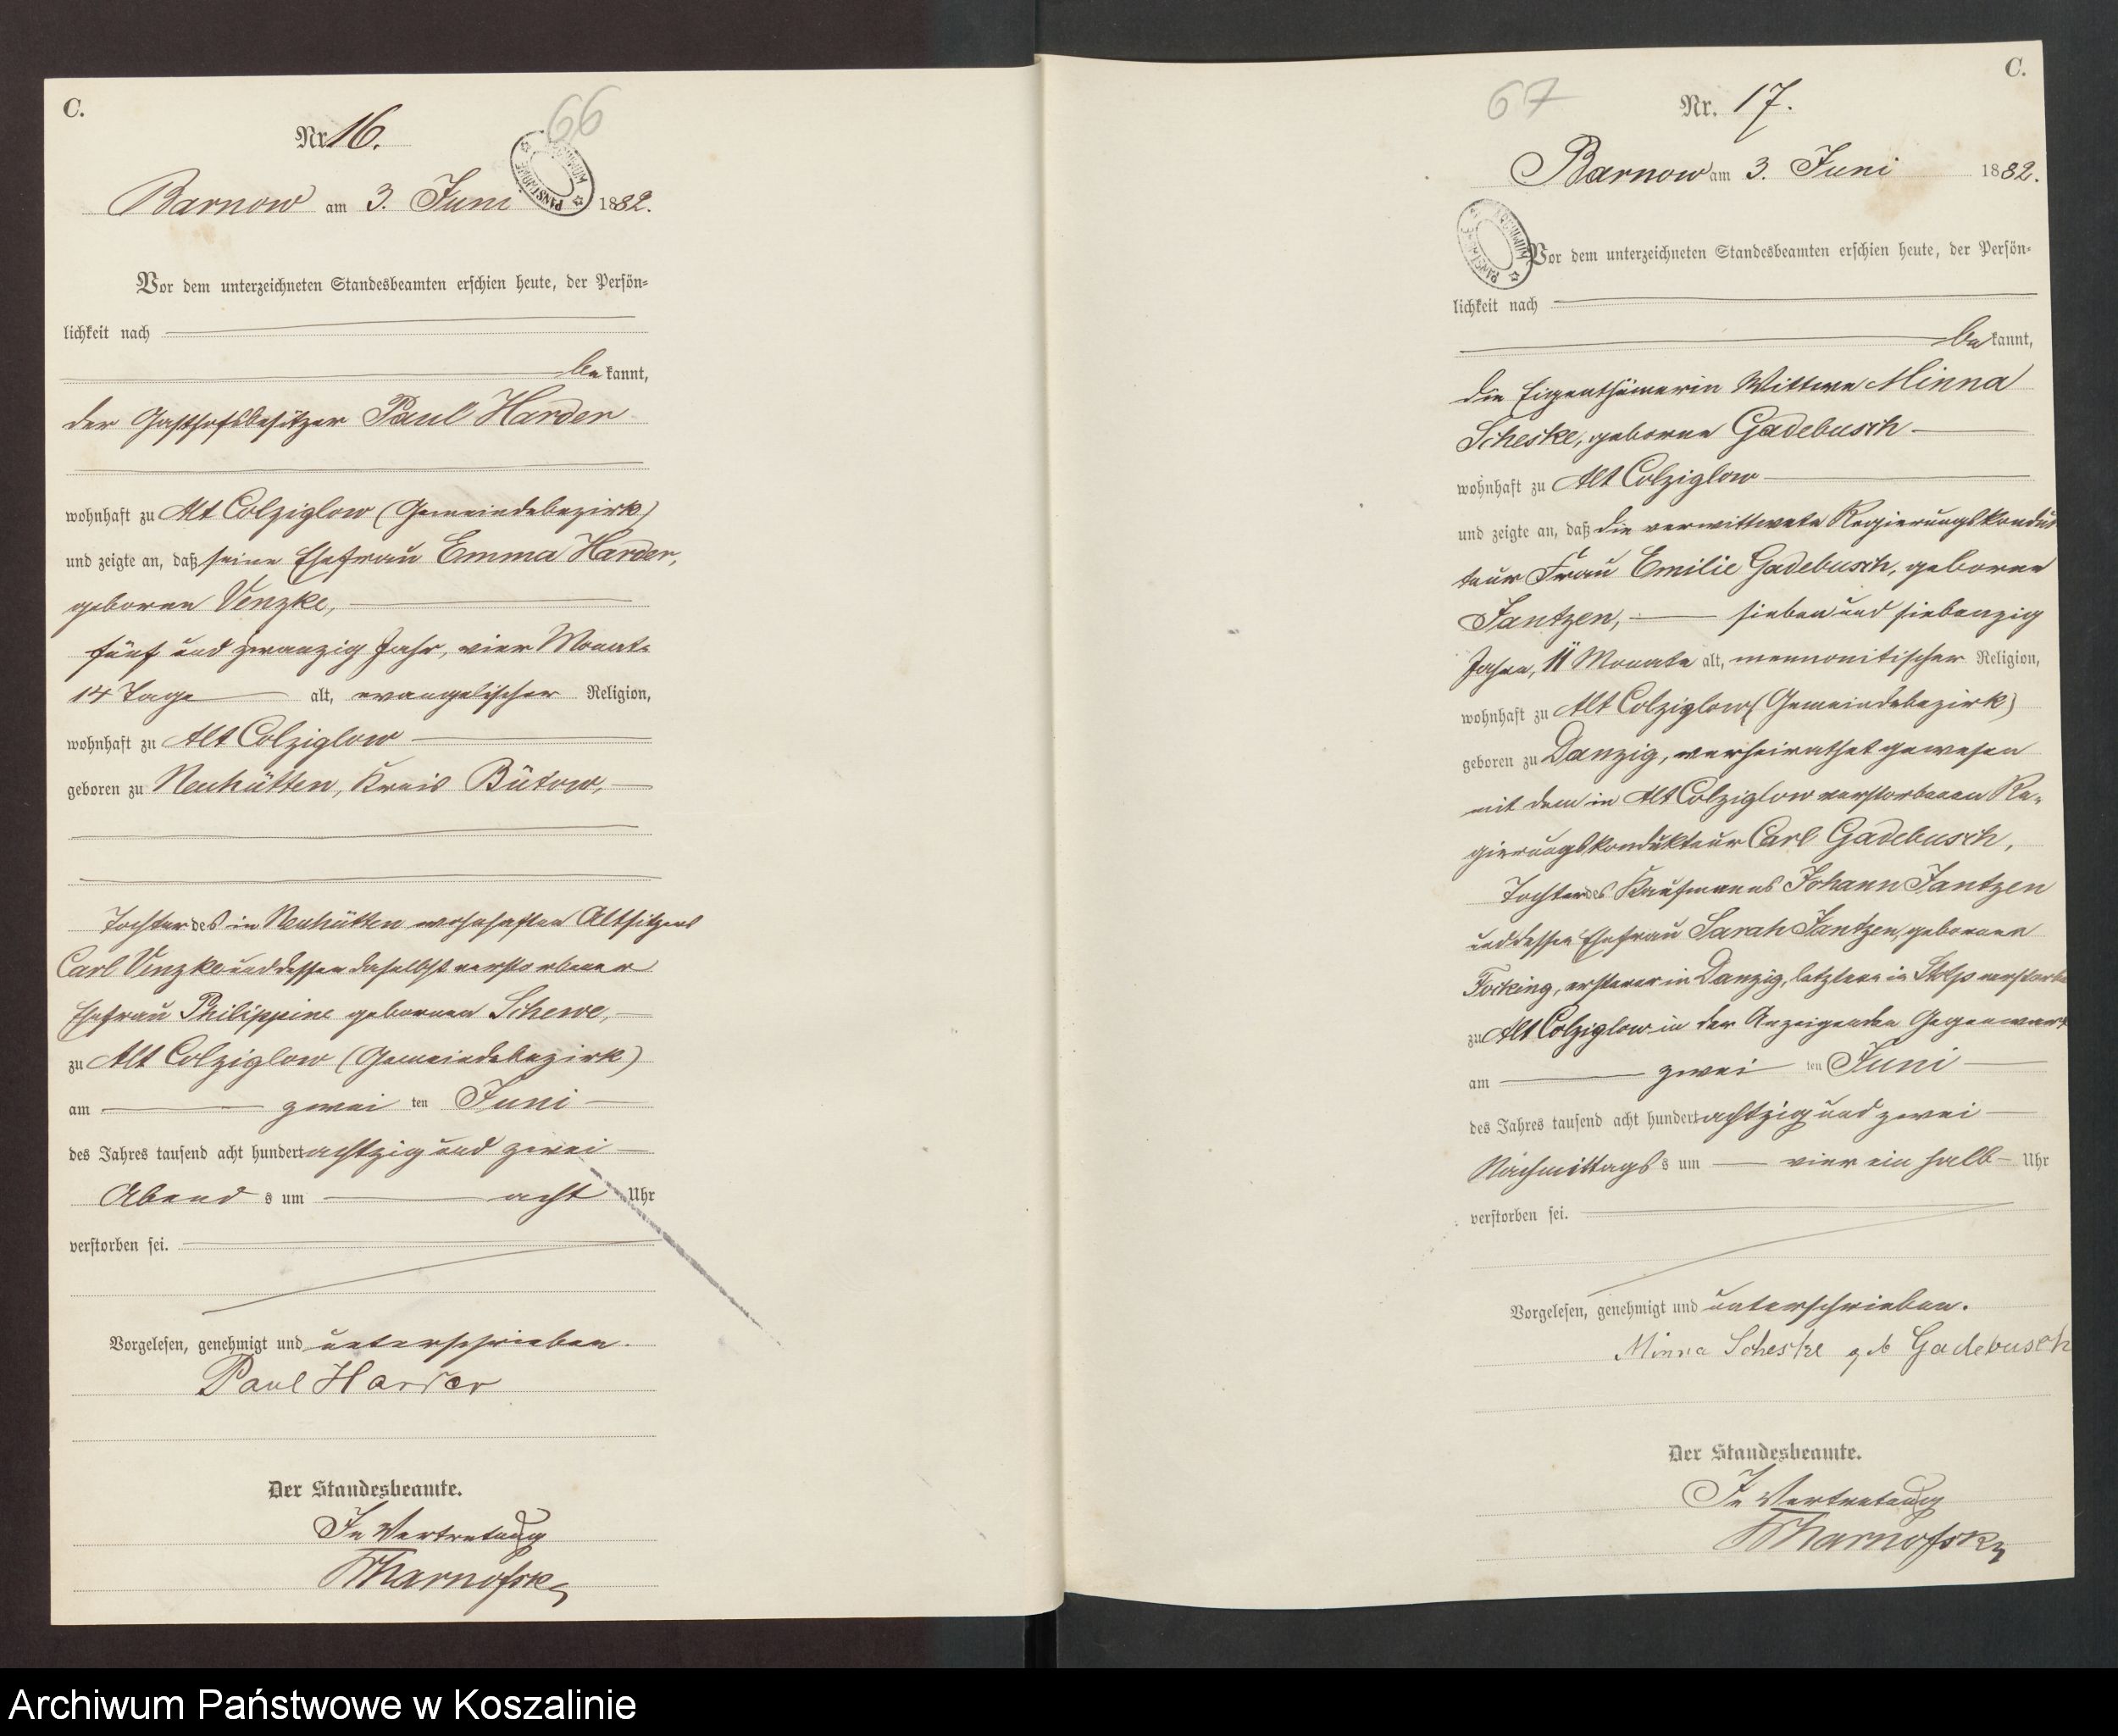 C.
66
Nr. 16.
Barnow am 3. Juni 1882.
Vor dem unterzeichneten Standesbeamten erschien heute, der Persön-
lichkeit nach
be kannt,
der Gasthofsbesitzer Paul Harder
wohnhaft zu Alt Colziglow (Gemeindebezirk)
und zeigte an, daß seine Ehefrau Emma Harder,
geborne Venzke,
fünf und zwanzig Jahr, vier Monate
14 Tage alt, evangelischer Religion,
wohnhaft zu Alt Colziglow
geboren zu Neuhütten, Kreis Bütow,
Tochter des in Neuhütten wohnhaften Altsitzers
Carl Venzke und dessen daselbst verstorbener
Ehefrau Philippine gebornen Schewe,
zu Alt Colziglow (Gemeindebezirk)
am zwei ten Juni
des Jahres tausend acht hundert achtzig und zwei
Abend s um acht Uhr
verstorben sei.
Vorgelesen, genehmigt und unterschrieben.
Paul Harder
Der Standesbeamte.
In Vertretung
C.
67
Nr. 17.
Barnow am 3. Juni 1882.
Vor dem unterzeichneten Standesbeamten erschien heute, der Persön-
lichkeit nach
be kannt,
die Eigenthümerin Wittwe Minna
Scheske, geborne Gadebusch
wohnhaft zu Alt Colziglow
und zeigte an, daß die verwittwete Regierungskonduk
teur Frau Emilie Gadebusch, geborne
Jantzen, sieben und siebenzig
Jahre, 11 Monate alt, mennonitischer Religion,
wohnhaft zu Alt Colziglow (Gemeindebezirk)
geboren zu Danzig, verheirathet gewesen
mit dem in Alt Colziglow verstorbenen Re-
gierungskondukteur Carl Gadebusch,
Tochter des Kaufmanns Johann Jantzen
und dessen Ehefrau Sarah Jantzen, gebornen
Focking, ersterer in Danzig, letztere in Stolp verstorben
zu Alt Colziglow in der Anzeigenden Gegenwart
am zwei ten Juni
des Jahres tausend acht hundert achtzig und zwei
Nachmittags s um vier ein halb Uhr
verstorben sei.
Vorgelesen, genehmigt und unterschrieben.
Minna Scheske geb Gadebusch
Der Standesbeamte.
In Vertretung
Archiwum Państwowe w Koszalinie